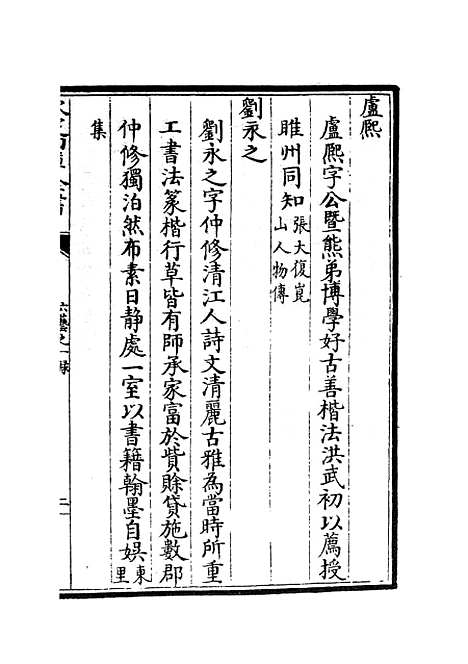 盧熙
盧熙字公暨熊弟博學好古善楷法洪武初以薦授
睢州同知張大復崑山人物傳
劉永之
劉永之字仲修清江人詩文清麗古雅為當時所重
工書法篆楷行草皆有師承家富於貲賒貸施數郡
仲修獨泊然布素日静處一室以書籍翰墨自娯東里
集
六藝之一録